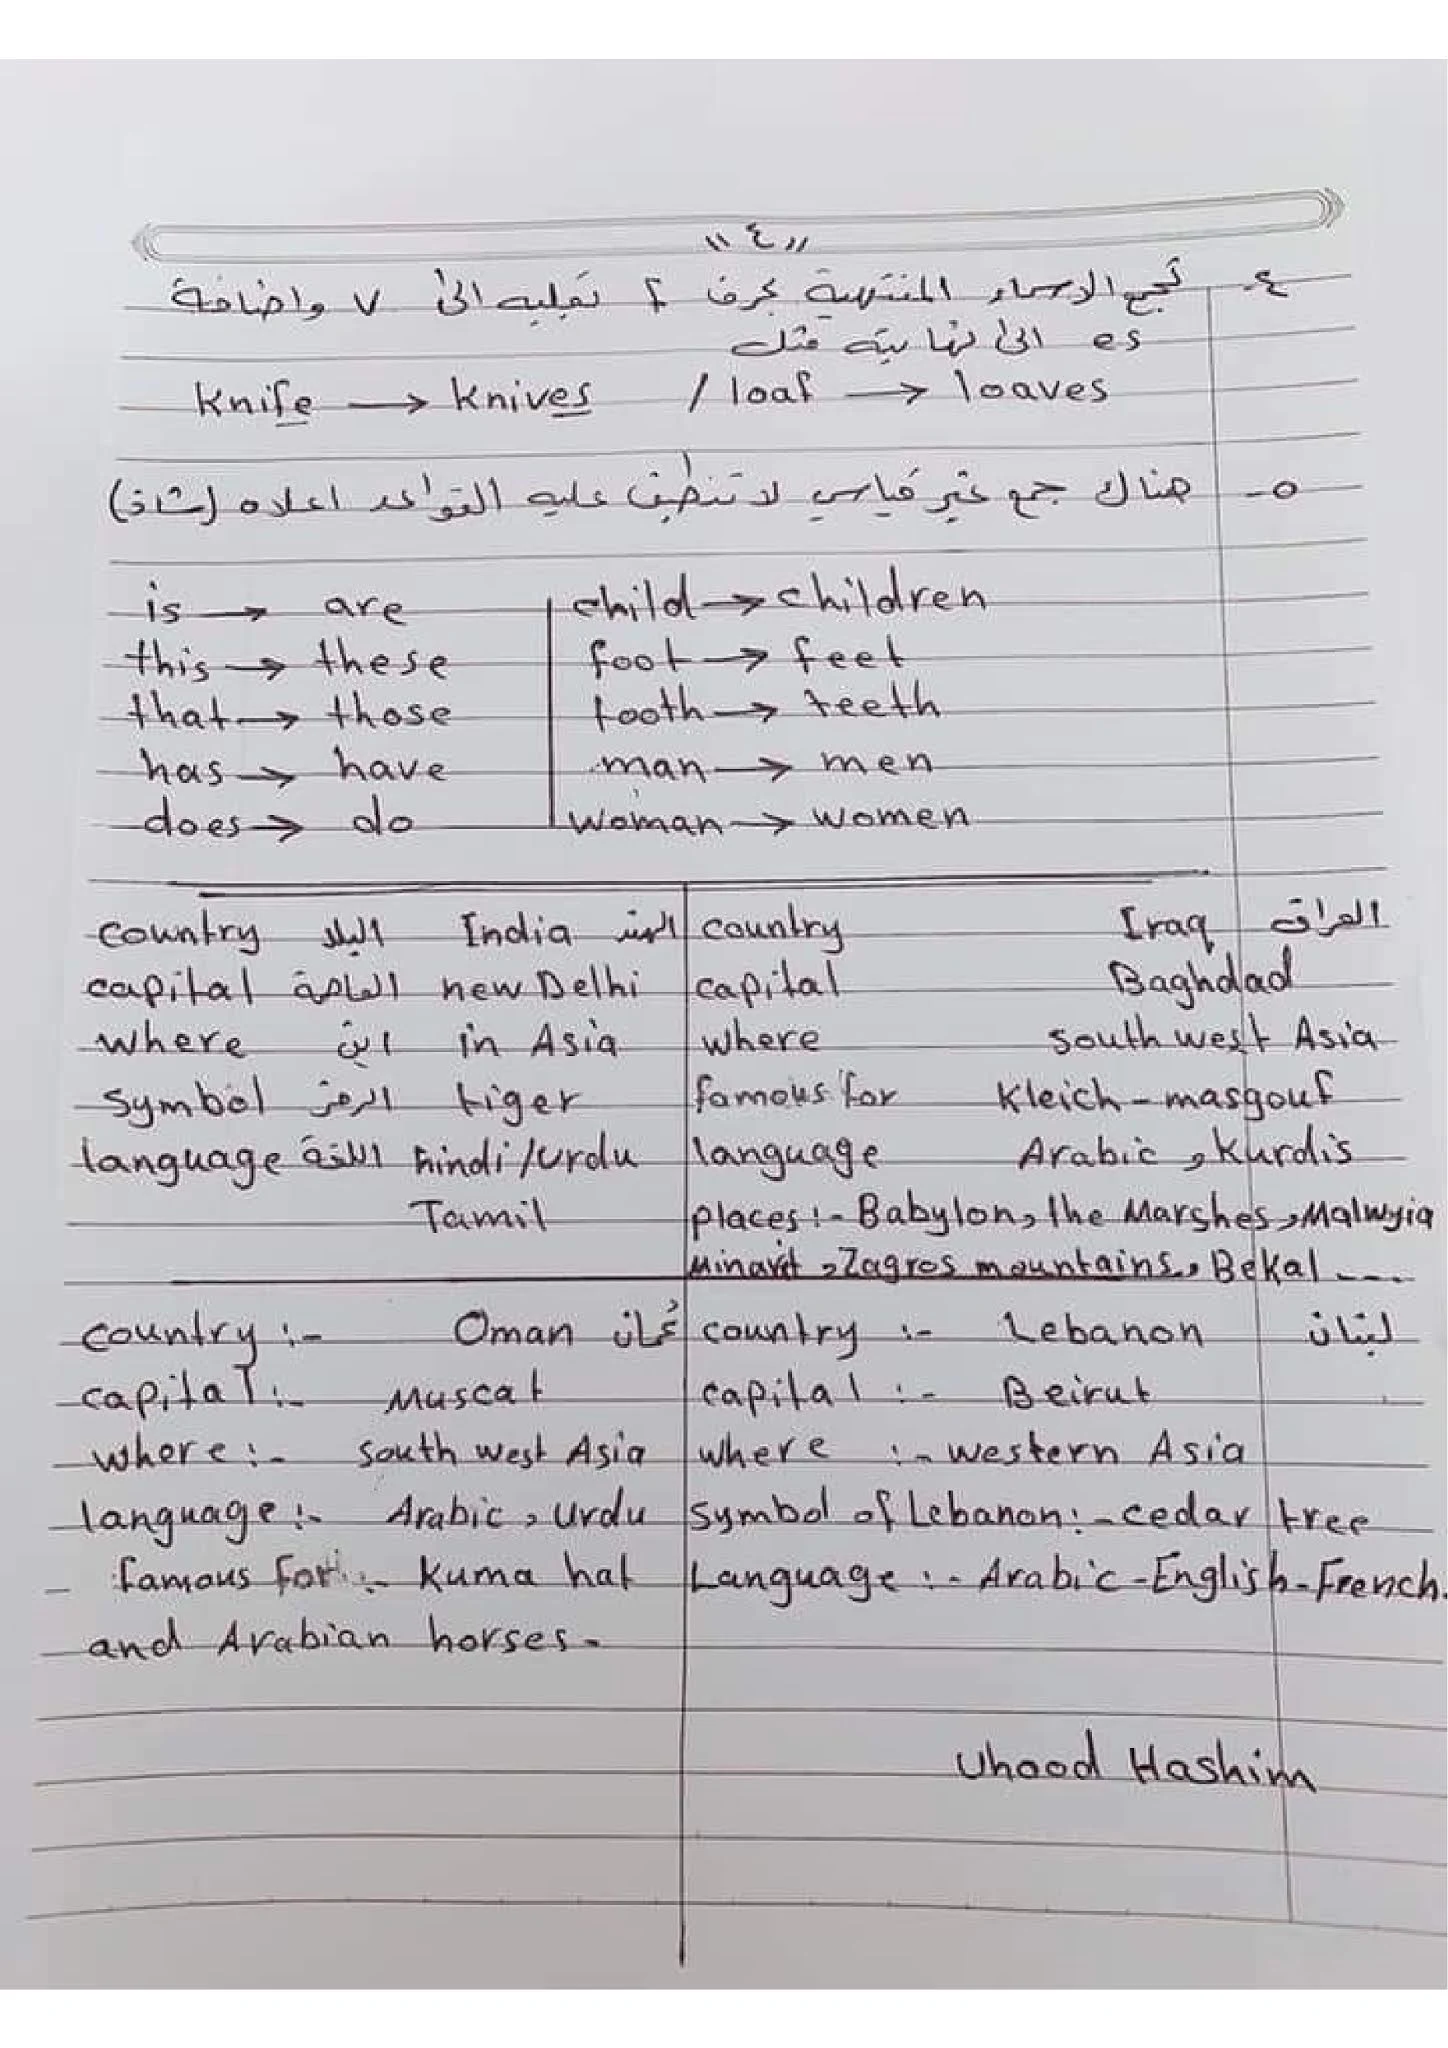 "٤"
٤- تجمع الاسماء المنتهية بحرف f نقلبه الى v واضافة
es الى نهايته مثل
knife → knives / loaf → loaves
٥- هناك جمع غير قياسي لا تنطبق عليه القواعد اعلاه (شاذ)
is → are
this → these
that → those
has → have
does → do
child → children
foot → feet
tooth → teeth
man → men
woman → women
country البلد India الهند
capital العاصمة new Delhi
where اين in Asia
symbol الرمز tiger
language اللغة hindi/urdu
Tamil
country Iraq العراق
capital Baghdad
where south west Asia
famous for Kleich-masgouf
language Arabic, Kurdis
places:- Babylon, the Marshes, Malwyia
Minaret, Zagros mountains, Bekal ----
country:- Oman عُمان
capital:- Muscat
where:- south west Asia
language:- Arabic, Urdu
famous for:- Kuma hat
and Arabian horses-
country:- Lebanon لبنان
capital:- Beirut
where:- western Asia
symbol of Lebanon:- cedar tree
Language:- Arabic-English-French.
Uhood Hashim